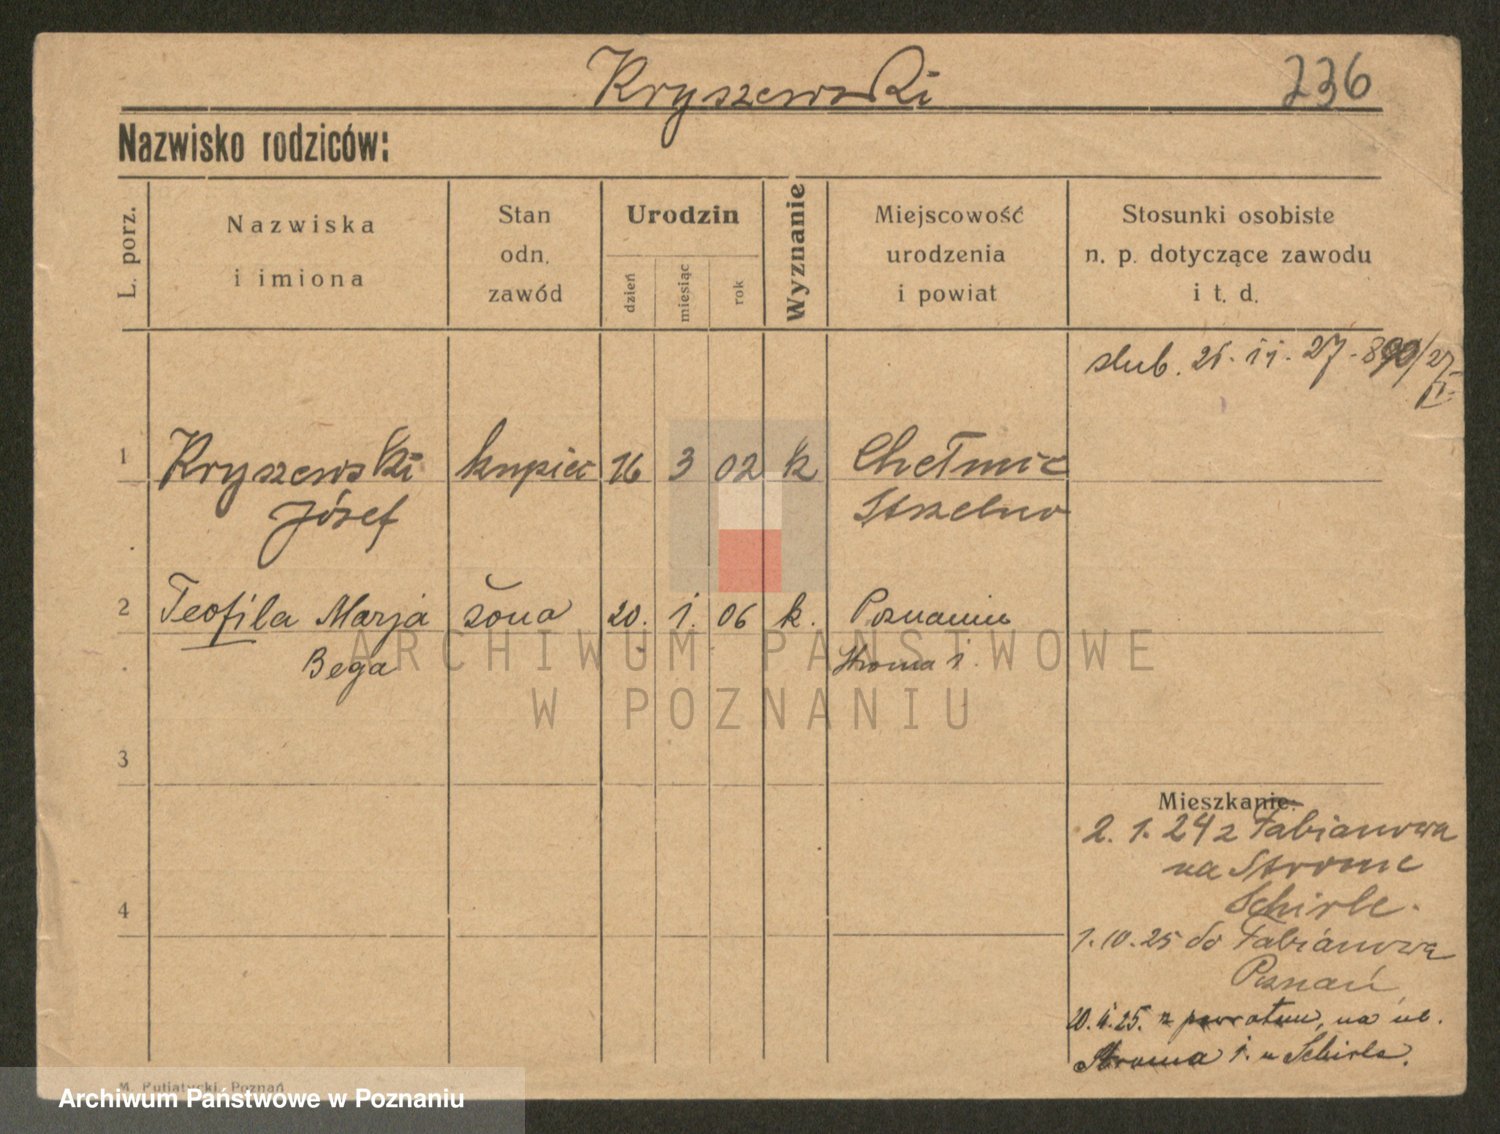 Kryszewski
236
Nazwisko rodziców:
L. porz.
Nazwiska
i imiona
Stan
odn.
zawód
Urodzin
dzień
miesiąc
rok
Wyznanie
Miejscowość
urodzenia
i powiat
Stosunki osobiste
n. p. dotyczące zawodu
i t. d.
slub. 21. 11. 27
1 Kryszewski kupiec 16 3 02 k Chełmic
Józef Strzelno
2 Teofila Marja żona 20. 1. 06 k. Poznaniu
Bega Stroma 1.
3
Mieszkanie:
2. 1. 24 z Fabianowa
na Strome
Schirle.
4
1. 10. 25 do Fabianowa
Poznań
z powrotem, na ul.
Stroma 1. u Schirla.
M. Putiatycki, Poznań
ARCHIWUM PAŃSTWOWE
W POZNANIU
Archiwum Państwowe w Poznaniu